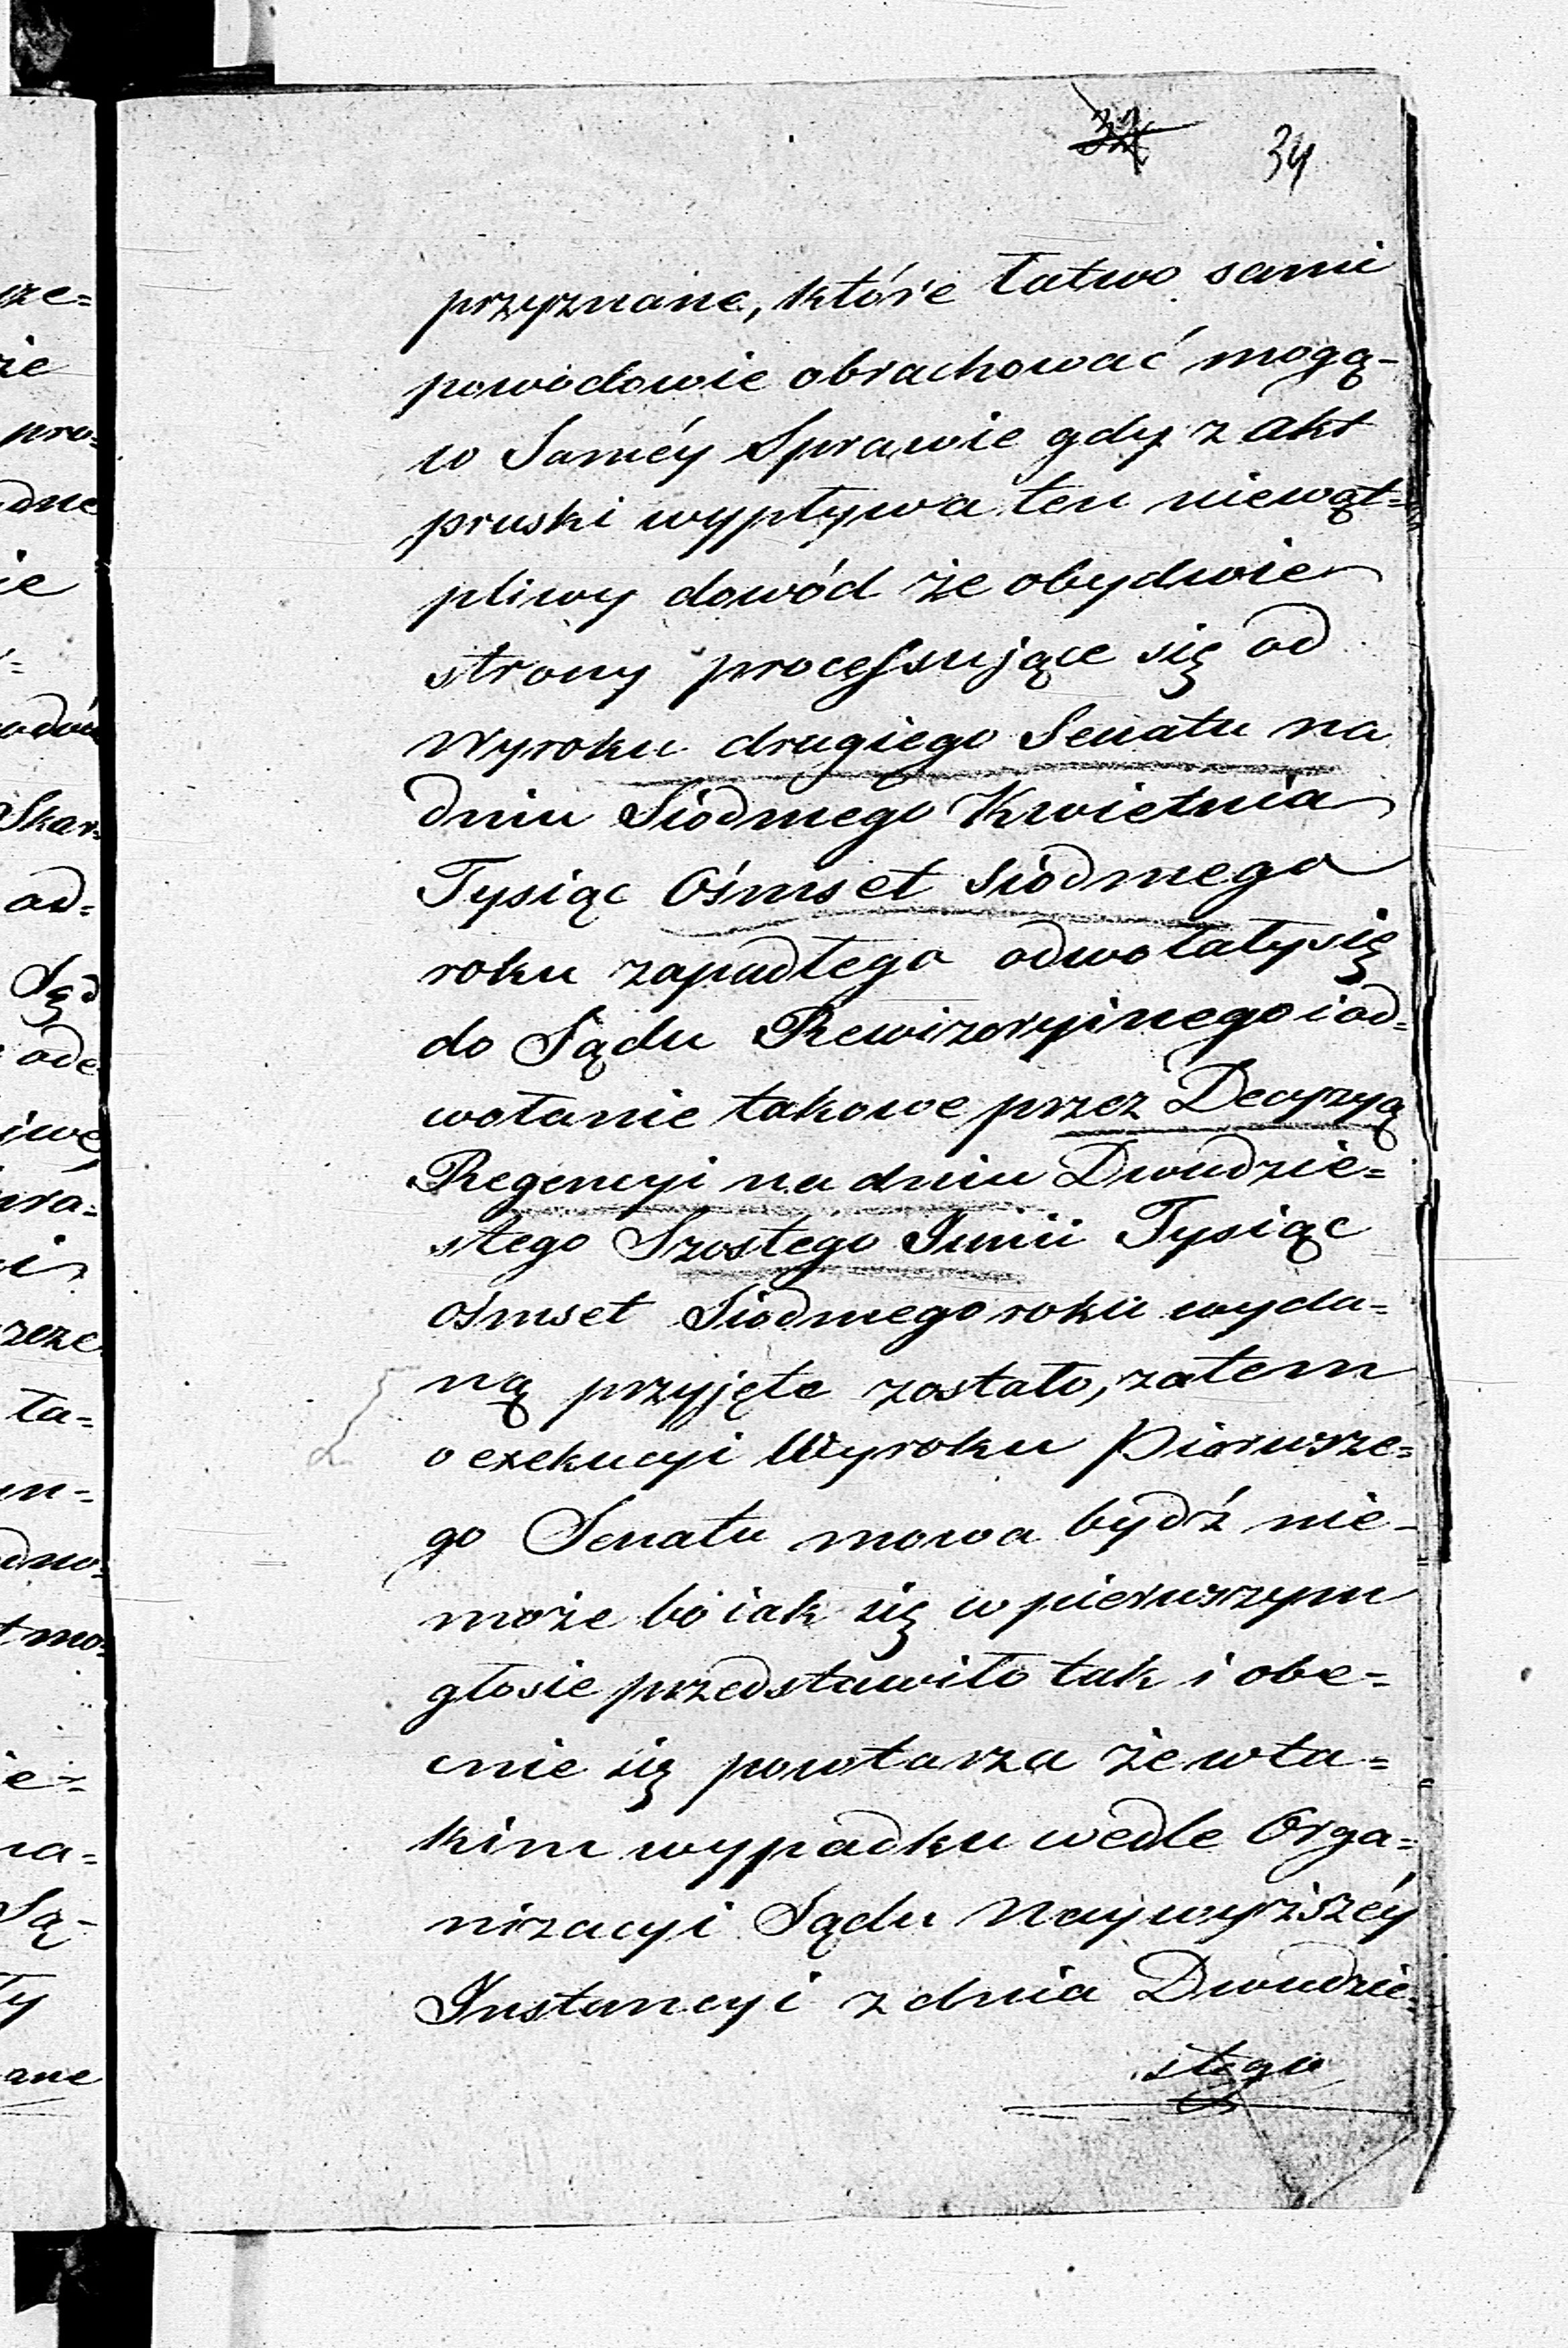 34
przyznane, które łatwo sami
powodowie obrachować mogą-
w Saméy Sprawie gdy z akt
pruski wypływa ten niewąt=
pliwy dowód że obydwie
strony processujące się od
Wyroku drugiego Senatu na
dniu Siódmego Kwietnia
Tysiąc Ośmset Siódmego
roku zapadłego odwołały się
do Sądu Rewizoryinego i od=
wołanie takowe przez Decyzyą
Regencyi na dniu Dwudzie=
stego Szostego Junii Tysiąc
ośmset Siodmego roku wyda=
ną przyjęte zostało, zatem
o exekucyi Wyroku Pierwsze=
go Senatu mowa bydź nie-
może bo iak się w pierwszym
głosie przedstawiło tak i obe=
cnie się powtarza że w ta=
kim wypadku wedle Orga=
nizacyi Sądu Naywyższéy
Instancyi z dnia Dwudzie=
stego
ze=
ie
pro=
dne
ie
adów
Skar=
od=
Sąd
ode
iwe
ra=
i
zeze
ta=
un-
dno=
mo=
ie=
na=
Są-
ły
ane